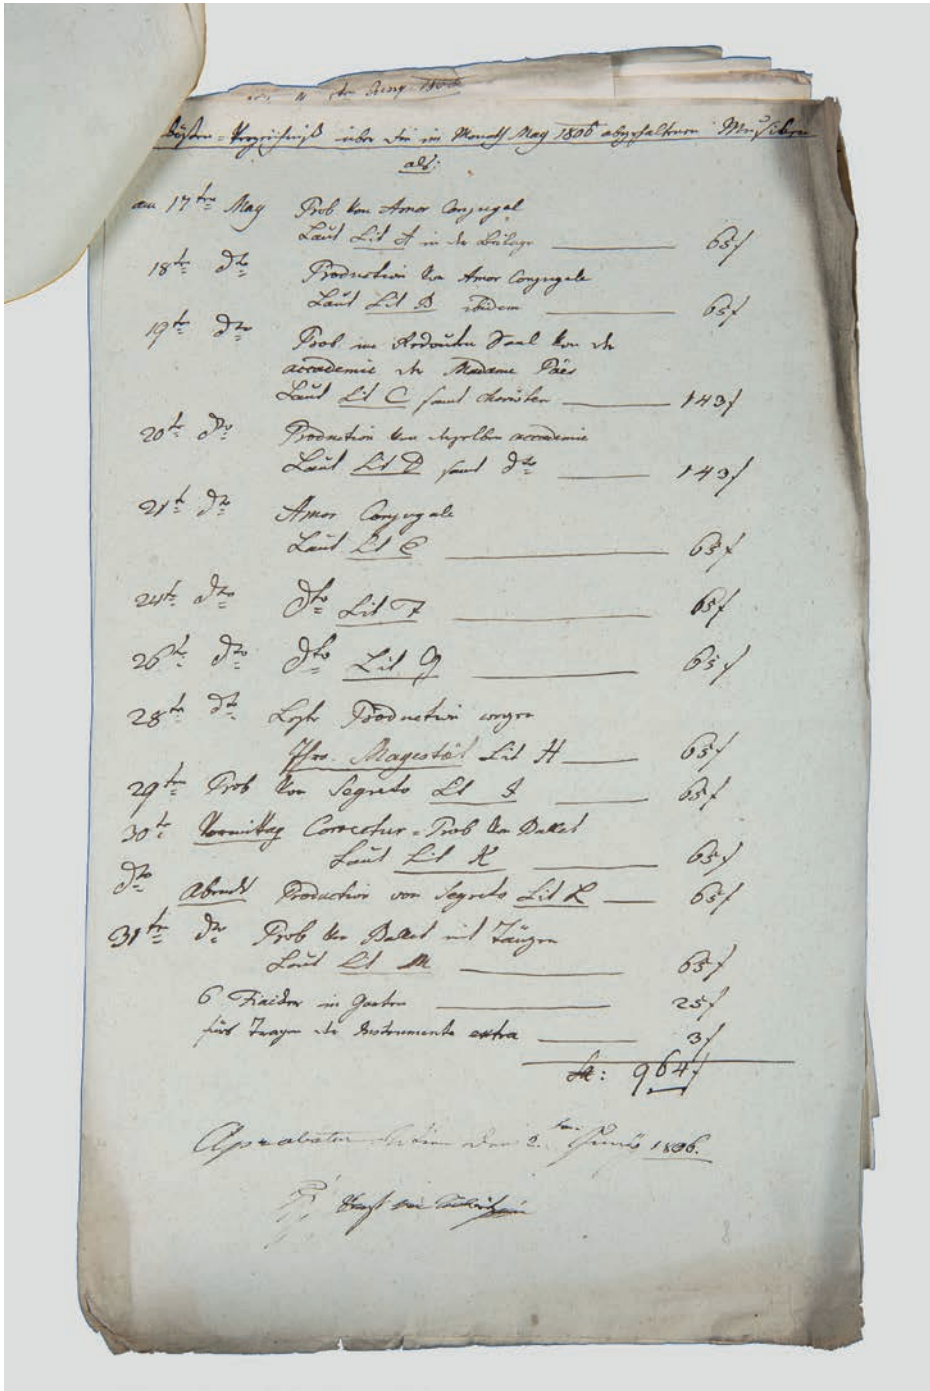 den Juny 1806
Kösten-Verzeichniß über die im Monath May 1806 abgehaltenen Musiken
als:
am 17tn May Prob von Amor Conjugal
Laut Lit A in der Beilage 65f
18tn dto Production von Amor Conjugale
Laut Lit B ibidem 65f
19tn dto Prob im Redouten Saal von der
accademie der Madame Päer
Laut Lit C samt Choristen 143f
20tn dto Production von derselben accademie
Laut Lit D samt dto 143f
21tn dto Amor Conjugale
Laut Lit E 65f
24tn dto dto Lit F 65f
26tn dto dto Lit G 65f
28tn dto Letzte Production wegen
Ihro Magestät Lit H 65f
29tn Prob von Segreto Lit I 65f
30tn Vormittag Correctur-Prob von Ballet
Laut Lit K 65f
dto Abends Production von Segreto Lit L 65f
31tn dto Prob von Ballet mit Tänzen
Laut Lit M 65f
6 Fiacker in Garten 25f
fürs Tragen der Instrumente extra 3f
Sa: 964f
Aprobatur Wien den 2. Juny 1806.